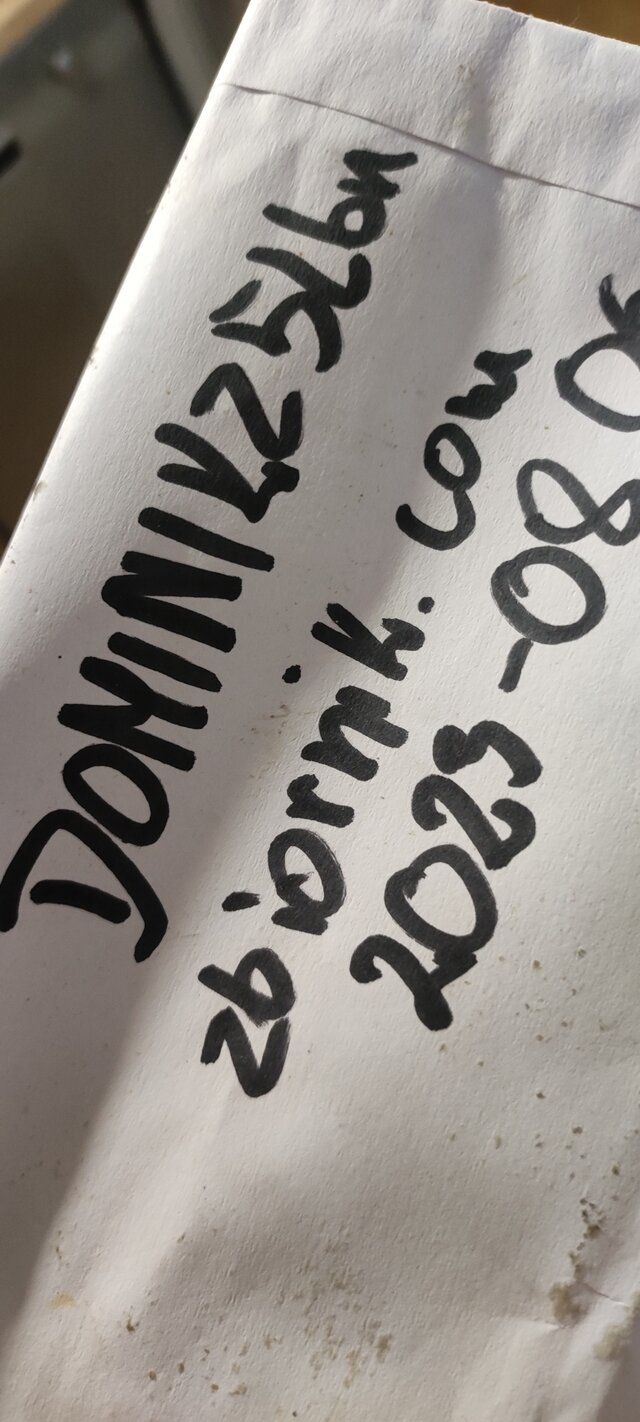 DOMINKZ5Lbn
zbiornik.com
2023-08 06